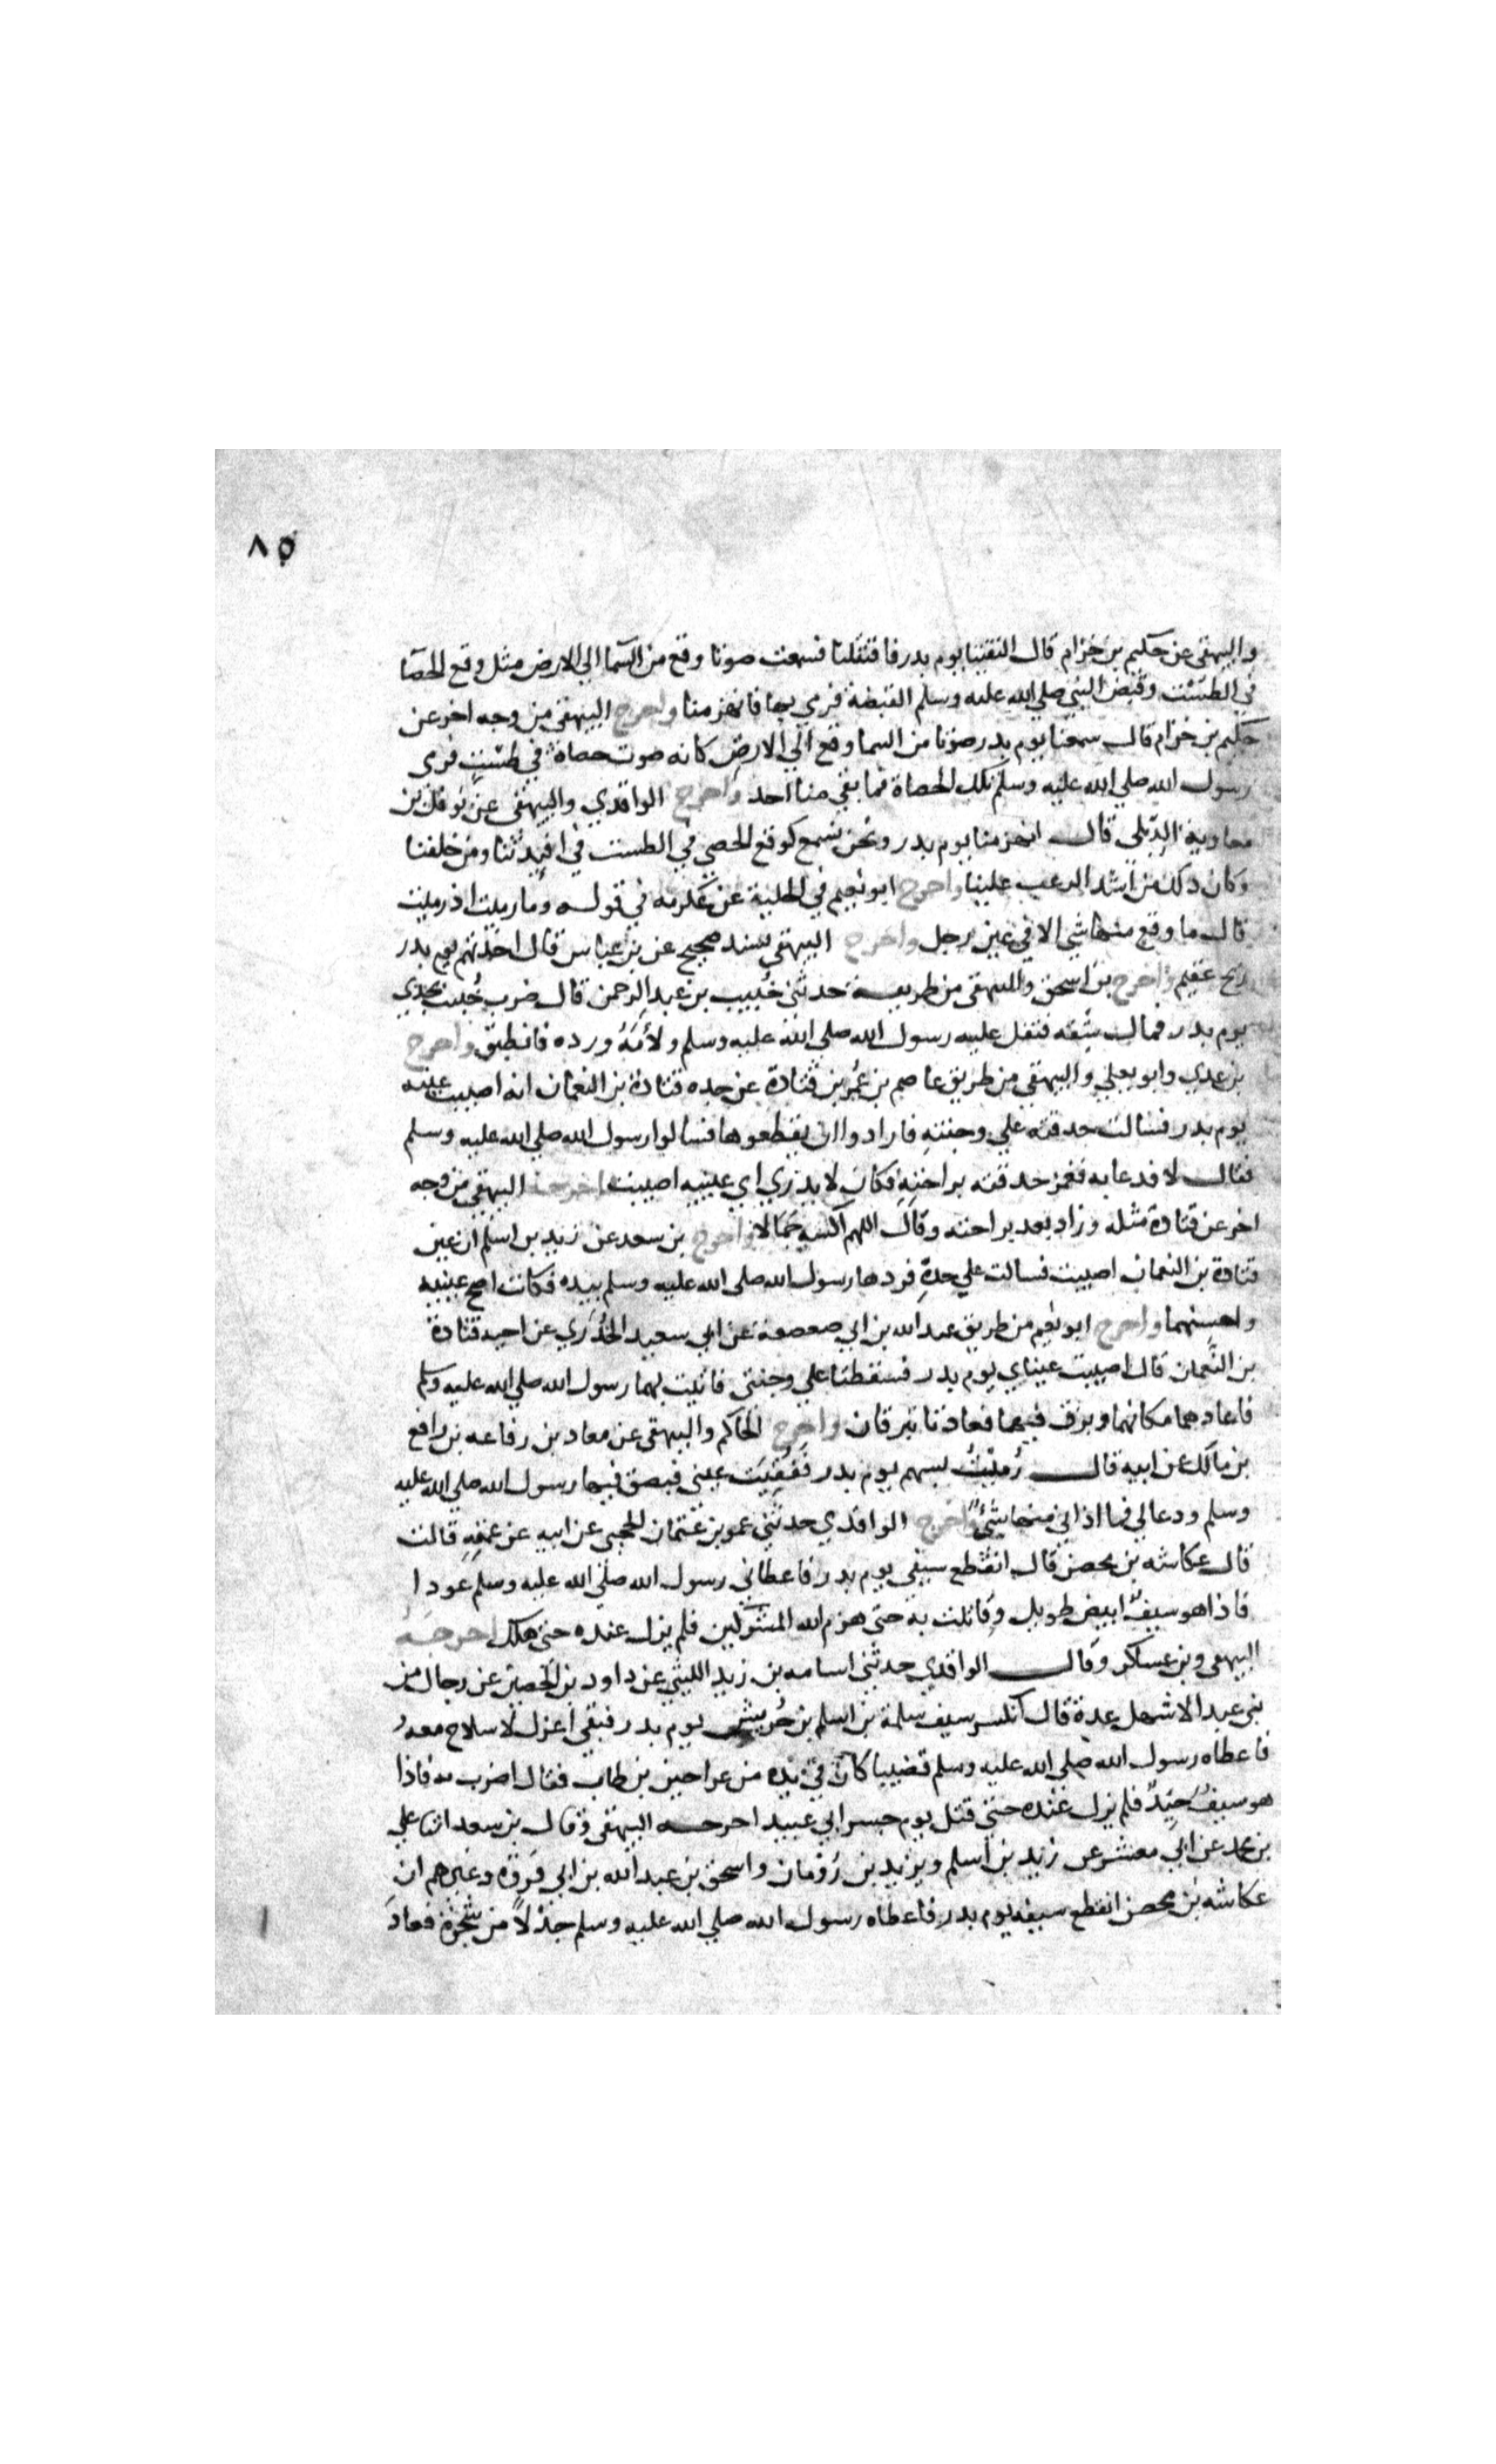 ٨٥
والبيهقي عن حكيم بن حزام قال التقينا يوم بدر فاقتتلنا فسمعت صوتا وقع من السما الي الارض مثل وقع الحصا
في الطست وقبض النبي صلي الله عليه وسلم القبضة فرمي بها فانهزمنا واخرج البيهقي من وجه اخر عن
حكيم بن حزام قال سمعنا يوم بدر صوتا من السما وقع الي الارض كانه صوت حصاة في طست فرمى
رسول الله صلي الله عليه وسلم تلك الحصاة فما بقي منا احد واخرج الواقدي والبيهقي عن نوفل بن
معاوية الديلي قال انهزمنا يوم بدر ونحن نسمع كوقع الحصي في الطست في افيدتنا ومن خلفنا
وكان ذلك من اشد الرعب علينا واخرج ابو نعيم في الحلية عن عكرمة في قوله وما رميت اذ رميت
قال ما وقع منها شي الا في عين رجل واخرج البيهقي بسند صحيح عن بن عباس قال اخذتهم يوم بدر
ريح عقيم واخرج بن اسحق والبيهقي من طريقه حدثني خُبيب بن عبد الرحمن قال ضرب خُبيب جدي
يوم بدر فمال شقه فتفل عليه رسول الله صلي الله عليه وسلم ولأَمَهُ ورده فانطبق واخرج
بن عدي وابو يعلي والبيهقي من طريق عاصم بن عُمر بن قتادة عن جده قتادة بن النعمان انه اصيبت عينه
يوم بدر فسالت حدقته علي وجنته فارادوا ان يقطعوها فسالوا رسول الله صلي الله عليه وسلم
فقال لا فدعا به فغمز حدقته براحته فكان لا يدري اي عينيه اصيبت اخرجه البيهقي من وجه
اخر عن قتادة مثله وزاد بعد براحته وقال اللهم اكسه جمالا واخرج بن سعد عن زيد بن اسلم ان عين
قتادة بن النعمان اصيبت فسالت علي خده فردها رسول الله صلي الله عليه وسلم بيده فكانت اصح عينيه
واحسنهما واخرج ابو نعيم من طريق عبد الله بن ابي صعصعة عن ابي سعيد الخُدري عن اخيه قتادة
بن النعمن قال اصيبت عيناي يوم بدر فسقطتا علي وجنتي فاتيت بهما رسول الله صلي الله عليه وسلم
فاعادهما مكانهما وبزق فيهما فعادتا تبرقان واخرج الحاكم والبيهقي عن معاد بن رفاعه بن رافع
بن مالك عن ابيه قال رُميْتُ بسهم يوم بدر فَفُقِيَت عيني فبصق فيها رسول الله صلي الله عليه
وسلم ودعا لي فما اذاني منها شيءٌ واخرج الواقدي حدثني عمر بن عثمان الجحبي عن ابيه عن عمته قالت
قال عكاشه بن محصن قال انقطع سيفي يوم بدر فاعطاني رسول الله صلي الله عليه وسلم عودا
فاذا هو سيفٌ ابيض طويل وقاتلت به حتى هزم الله المشركين فلم يزل عنده حتى هلك اخرجه
البيهقي وبن عساكر وقال الواقدي حدثني اسامه بن زيد الليثي عن داود بن الحصين عن رجال من
بني عبد الاشهل عدة قال انكسر سيف سلمة بن اسلم بن حُريش يوم بدر فبقي اعزل لا سلاح معه
فاعطاه رسول الله صلي الله عليه وسلم قضيبا كان في يده من عراجين بن طاب فقال اضرب به فاذا
هو سيفٌ جيدٌ فلم يزل عنده حتي قتل يوم جسر ابي عبيد اخرجه البيهقي وقال بن سعد انا علي
بن محمد عن ابي معشر عن زيد بن اسلم ويزيد بن رومان واسحق بن عبد الله بن ابي فروة وغيرهم ان
عكاشه بن محصن انقطع سيفه يوم بدر فاعطاه رسول الله صلي الله عليه وسلم جذلاً من شجرة فعاد